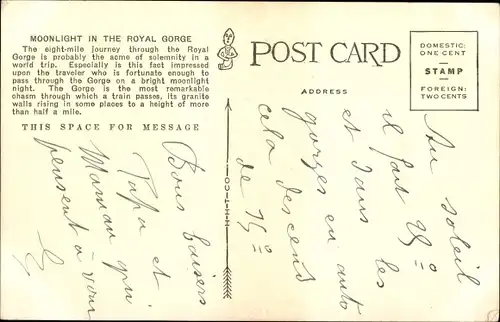 MOONLIGHT IN THE ROYAL GORGE
The eight-mile journey through the Royal
Gorge is probably the acme of solemnity in a
world trip. Especially is this fact impressed
upon the traveler who is fortunate enough to
pass through the Gorge on a bright moonlight
night. The Gorge is the most remarkable
chasm through which a train passes, its granite
walls rising in some places to a height of more
than half a mile.
THIS SPACE FOR MESSAGE
POST CARD
ADDRESS
DOMESTIC:
ONE CENT
STAMP
FOREIGN:
TWO CENTS
Au soleil
il fait 25°
et dans les
gorges en auto
cela descend
de 15°
Bons baisers
Papa et
Maman qui
pensent à vous